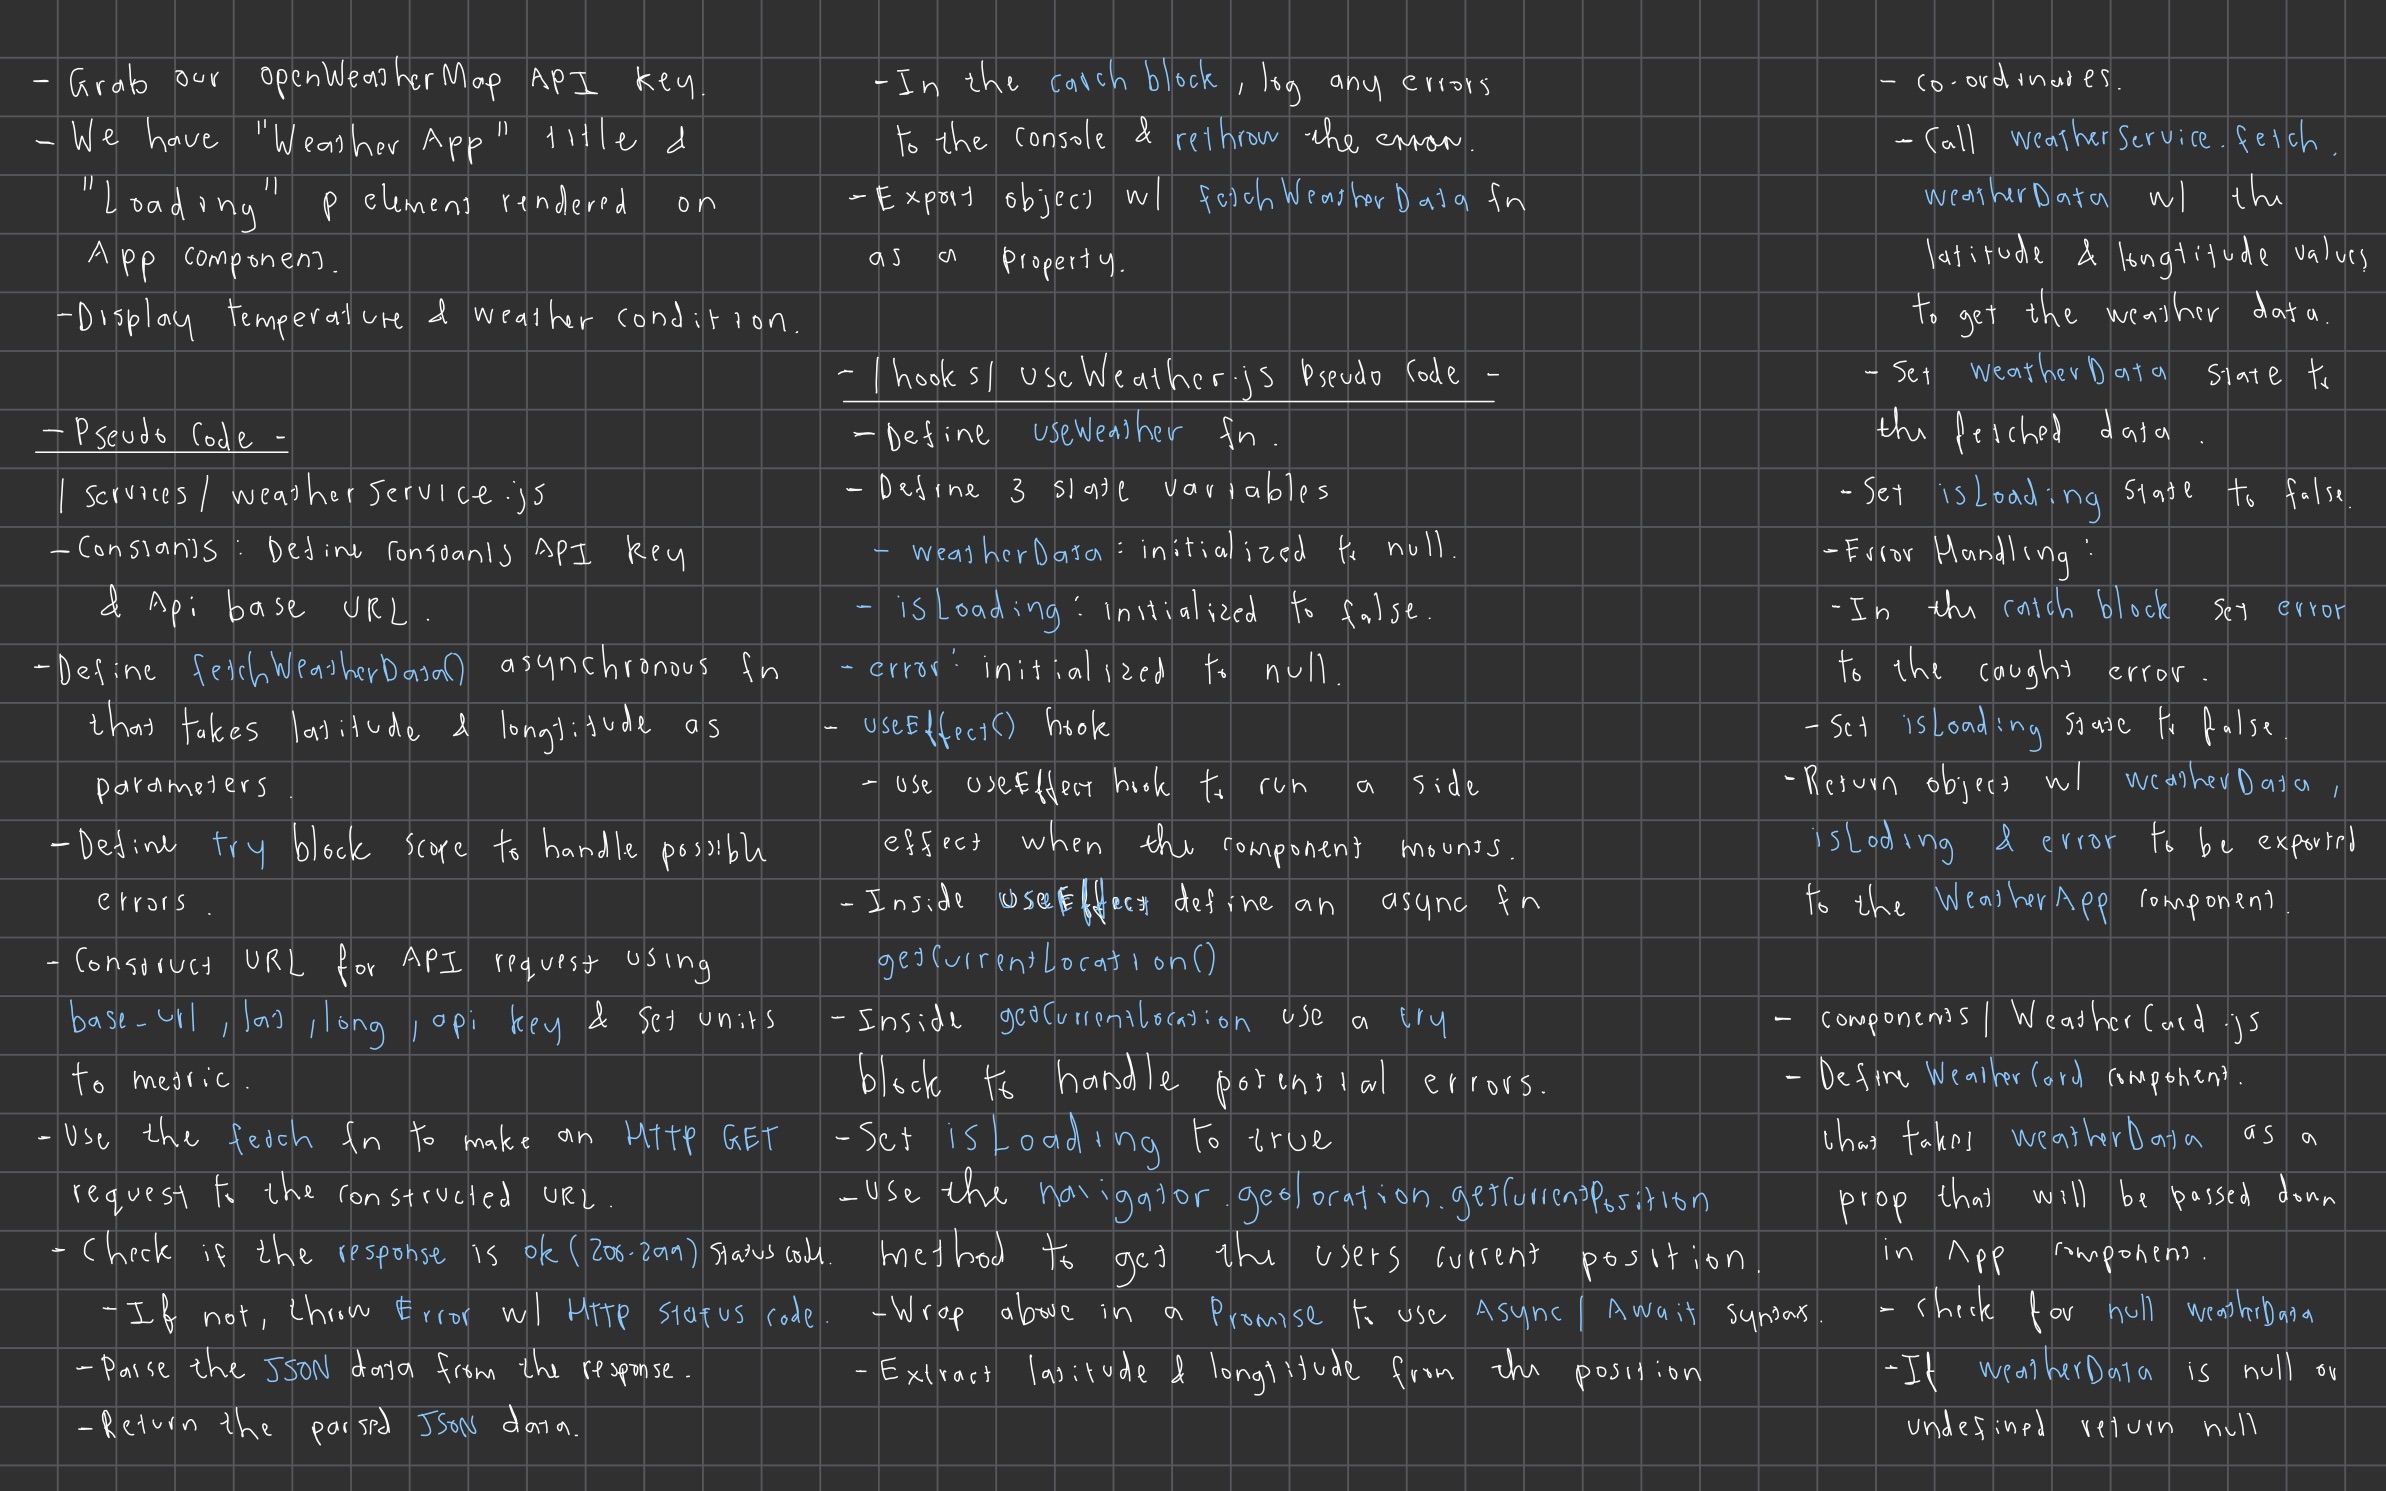 - Grab our openWeatherMap API key.
- We have "Weather App" title &
"Loading" p element rendered on
App component.
- Display temperature & weather condition.
- Pseudo Code -
/services/weatherService.js
- Constants : Define constants API key
& Api base URL.
- Define fetchWeatherData() asynchronous fn
that takes latitude & longtitude as
parameters.
- Define try block scope to handle possible
errors.
- Construct URL for API request using
base-url, lat, long, api key & set units
to metric.
- Use the fetch fn to make an HTTP GET
request to the constructed URL.
- Check if the response is ok (200-299) status code.
- If not, throw Error w/ HTTP status code.
- Parse the JSON data from the response.
- Return the parsed JSON data.
- In the catch block, log any errors
to the console & rethrow the error.
- Export object w/ fetchWeatherData fn
as a property.
- /hooks/ useWeather.js Pseudo Code -
- Define useWeather fn.
- Define 3 state variables
- weatherData : initialized to null.
- isLoading : initialized to false.
- error : initialized to null.
- useEffect() hook
- use useEffect hook to run a side
effect when the component mounts.
- Inside useEffect define an async fn
getCurrentLocation()
- Inside getCurrentLocation use a try
block to handle potential errors.
- Set isLoading to true
- Use the navigator.geolocation.getCurrentPosition
method to get the users current position.
- Wrap above in a Promise to use Async/Await syntax.
- Extract latitude & longtitude from the position
- co-ordinates.
- Call weatherService.fetch.
weatherData w/ the
latitude & longtitude values
to get the weather data.
- Set weatherData state to
the fetched data.
- Set isLoading state to false.
- Error Handling :
- In the catch block set error
to the caught error.
- Set isLoading state to false.
- Return object w/ weatherData,
isLoding & error to be exported
to the WeatherApp component.
- components/WeatherCard.js
- Define WeatherCard component.
that takes weatherData as a
prop that will be passed down
in App component.
- check for null weatherData
- If weatherData is null or
undefined return null